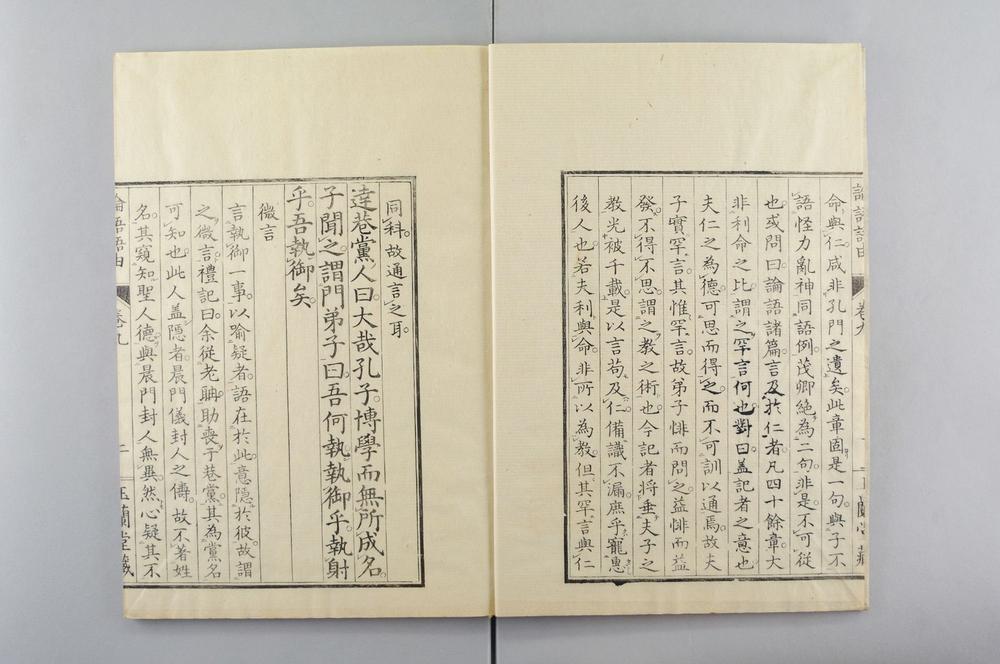 命與仁咸非孔門之遺矣此章固是一句與子不
語怪力亂神同語例茂卿絕為二句非是不可從
也或問曰論語諸篇言及於仁者凡四十餘章大
非利命之比謂之罕言何也對曰蓋記者之意也
夫仁之為德可思而得之而不可訓以通焉故夫
子實罕言其惟罕言故弟子悱而問之益悱而益
發不得不思謂之教之術也今記者將垂夫子之
教光被千載是以言苟及仁備識不漏庶乎寵惠
後人也若夫利與命非所以為教但其罕言與仁
同科故通言之耳
達巷黨人曰大哉孔子博學而無所成名
子聞之謂門弟子曰吾何執執御乎執射
乎吾執御矣
微言
言執御一事以喻疑者語在於此意隱於彼故謂
之微言禮記曰余從老聃助喪于巷黨其為黨名
可知也此人蓋隱者晨門儀封人之儔故不著姓
名其窺知聖人德與晨門封人無異然心疑其不
論語語由
卷九
二
玉蘭堂藏